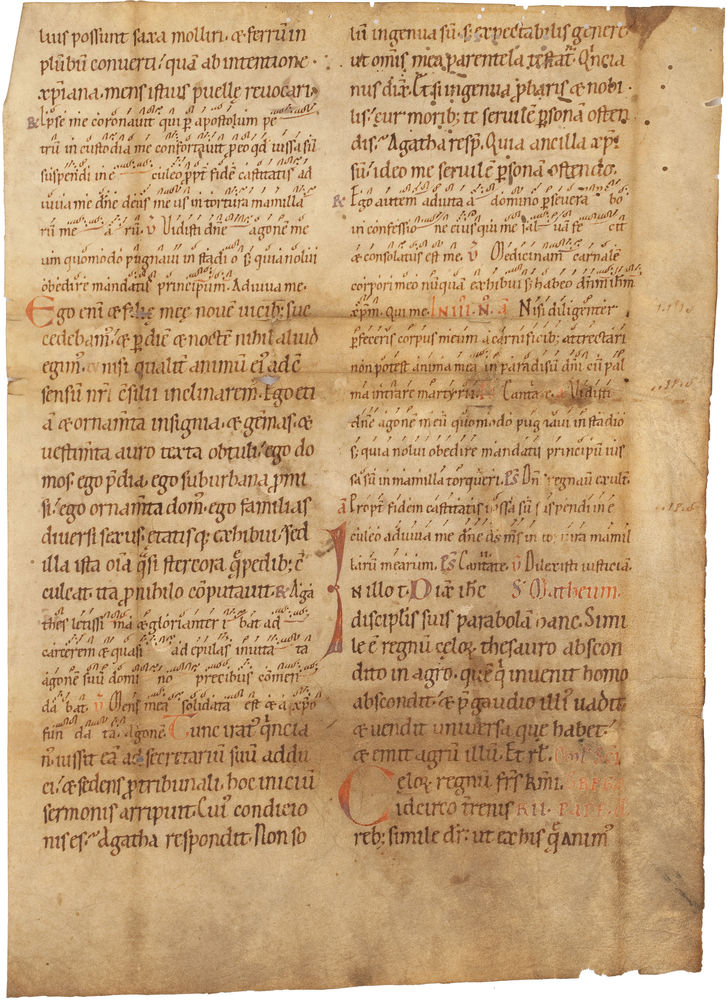 lius possunt saxa molliri. & ferrũ in
plũbũ conuerti. quã ab intentione
xp̃iana. mens istius puelle reuocari.
Ipse me coronauit qui p̱ apostolum pe
trũ in custodia me confortauit. p̱ eo qđ iussa sũ
suspendi in e culeo p̱pt̃ fidẽ castitatis ad
iuua me dñe deus me us in tortura mamilla
rũ me a rũ. ṽ Vidisti dñe agone me
um quomodo pugnaui in stadi o s; quia nolui
obedire mandatis principum. Adiuua me.
Ego eñi & filie mee nouẽ uicib; sue
cedebam᷒. & p̱ diẽ & noctẽ nihil aliud
egim᷒. nisi qualit̃ animũ ei᷒ ad ẽ
sensũ nr̃i cẽsilii inclinarem᷒. Ego eti
ã & ornam̃ta insignia. & gẽmas. &
uestim̃ta auro texta obtuli. ego do
mos. ego p̱dia. ego suburbana p̱mi
si. ego ornam̃ta dom᷒. ego familias
diuersi sexus. etatisq; exhibui. sed
illa ista oĩa q̃si stercora q̃ pedib; cẽ
culcat. ita p̱ nihilo cõputauit. Aga
thes letissi ma & glorianter i bat ad
carcerem & quasi ad epulas inuita ta
agonẽ suũ domi no precibus cõmen
da bat. ṽ Mens mea solidata est & a xp̃o
fun da ta. Agonẽ Tunc irat᷒ q̃ncia
n᷒. iussit eã ad secretariũ suũ addu
ci. & sedens p̱ tribunali. hoc iniciũ
sermonis arripuit. Cui᷒ condicio
nis es. Agatha respondit. Non so
lũ ingenua sũ. s; expectabilis genere.
ut om̃is mea parentela testat᷒. q̃ncia
nus dix̃. Et si ingenua p̱baris & nobi
lis. cur morib; te seruilẽ p̱sonã osten
dis. Agatha resp̃. Quia ancilla xp̃i
sũ. ideo me seruilẽ p̱sonã ostendo.
Ego autem adiuta a domino perseuera bo
in confessio ne eius qui me sal uã fe cit
& consolatus est me. ṽ Medicinam carnalẽ
corpori meo nũquã exhibui s; habeo dñm ihm̃
xp̃m. Qui me. IN III. N. ã Nisi diligenter
p̱feceris corpus meum a carnificib; attrectari
non potest anima mea in paradisũ dñi cũ pal
ma intrare martyrii. Cantate. Vidisti
dñe agonẽ meũ quomodo pugnaui in stadio
s; quia nolui obedire mandatis principũ ius
sa sũ in mamilla torqueri. P̃s Dñ᷒ regnauit exult̃.
ã Propt̃ fidem castitatis iussa sũ suspendi in e
culeo adiuua me dñe ds̃ m̃s in tortura mamil
larũ mearum. P̃s Cantate. ṽ Dilexisti iusticiã.
In illo t. Dix̃ ihc S. Matheum.
discipl̃is suis parabolã hanc. Simi
le ẽ regnũ celoꝝ thesauro abscon
dito in agro. quẽ q̃ inuenit homo
abscondit. & p̱ gaudio illi᷒ uadit
& uendit uniuersa que habet.
& emit agrũ illũ. Et rl̃.
Celoꝝ regnũ frs̃ km̃i.
idcirco t̃renis
reb; simile dr̃. ut ex his q̃ anim᷒